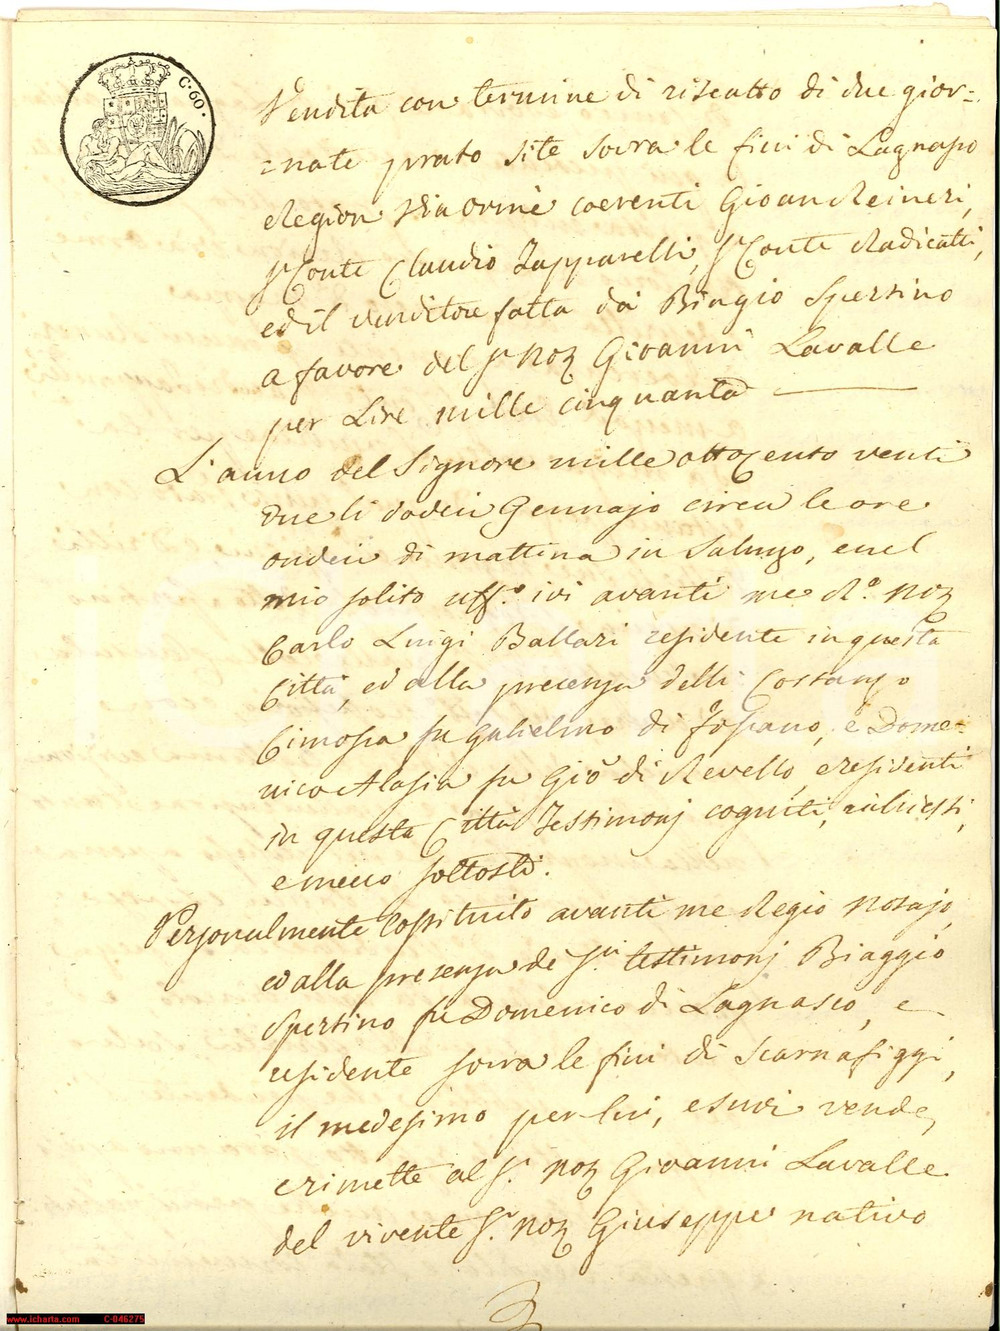 C. 60.
Vendita con termine di riscatto di due gior=
=nate prato site sovra le fini di Lagnasco
Region Via coerenti Gioan Reineri,
Sr Conte Claudio Tapparelli, Sr Conte Radicati,
ed il venditore fatta da Biagio Spertino
a favore del Sr Noz Gioanni Lavalle
per Lire mille cinquanta
L'anno del Signore mille ottocento venti
due li dodeci Gennajo circa le ore
ondeci di mattina in Saluzzo, e nel
mio solito uff.o ivi avanti me R.o Noz
Carlo Luigi Ballari residente in questa
Città, ed alla presenza delli Costanzo
Cimossa fu Gulielmo di Fossano, e Dome=
nico Alasia fu Gio di Revello, e residenti
in questa Città Testimonj cogniti, richiesti,
e meco sottosti.
Personalmente Costituito avanti me Regio Notajo,
ed alla presenza de Sri testimonj Biaggio
Spertino fu Domenico di Lagnasco, e
residente sovra le fini di Scarnafiggi,
il medesimo per lui, e suoi vende,
e rimette al Sr. Noz Gioanni Lavalle
del vivente Sr. Noz Giuseppe nativo
www.icharta.com C-046275